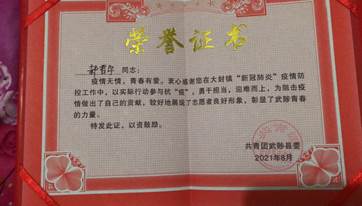 荣誉证书
同志：
疫情无情，青春有爱。衷心感谢您在大封镇“新冠肺炎”疫情防
控工作中，以实际行动参与抗“疫”，勇于担当，迎难而上，为阻击疫
情做出了自己的贡献，较好地展现了志愿者良好形象，彰显了武陟青春
的力量。
特发此证，以资鼓励。
共青团武陟县委
2021年8月